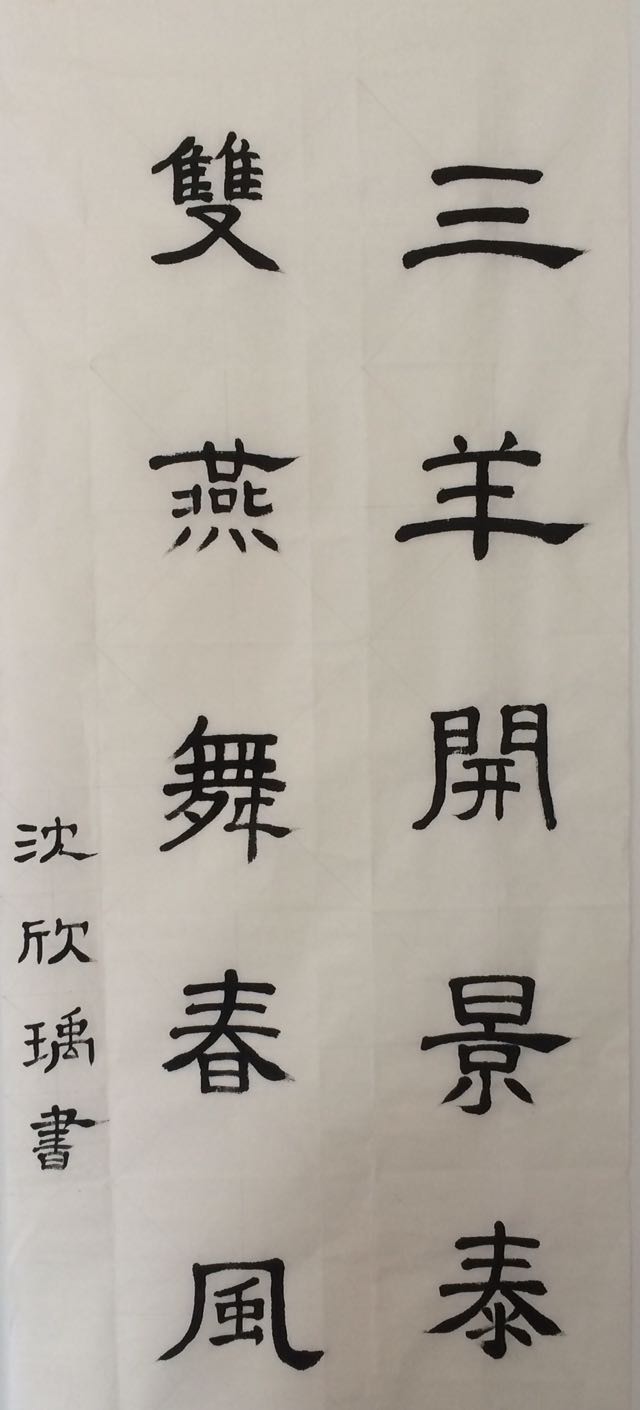 三羊開景泰
雙燕舞春風
沈欣瑀書